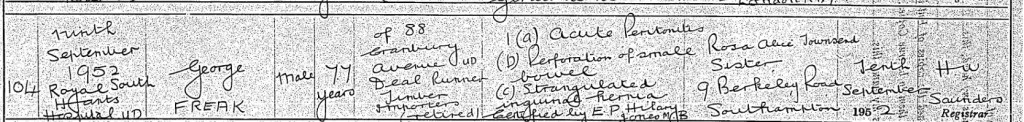 104
Ninth
September
1952
Royal South
Hants
Hospital UD
George
FREAK
Male
77
years
of 88
Cranbury
Avenue UD
Deal Runner
Timber
Importers
(retired)
1(a) Acute Peritonitis
(b) Perforation of small
bowel
(c) Strangulated
inguinal hernia
Certified by E. P. Hilary
Jones MB
Rosa Alice Townsend
Sister
9 Berkeley Road
Southampton
Tenth
September
1952
Saunders
Registrar